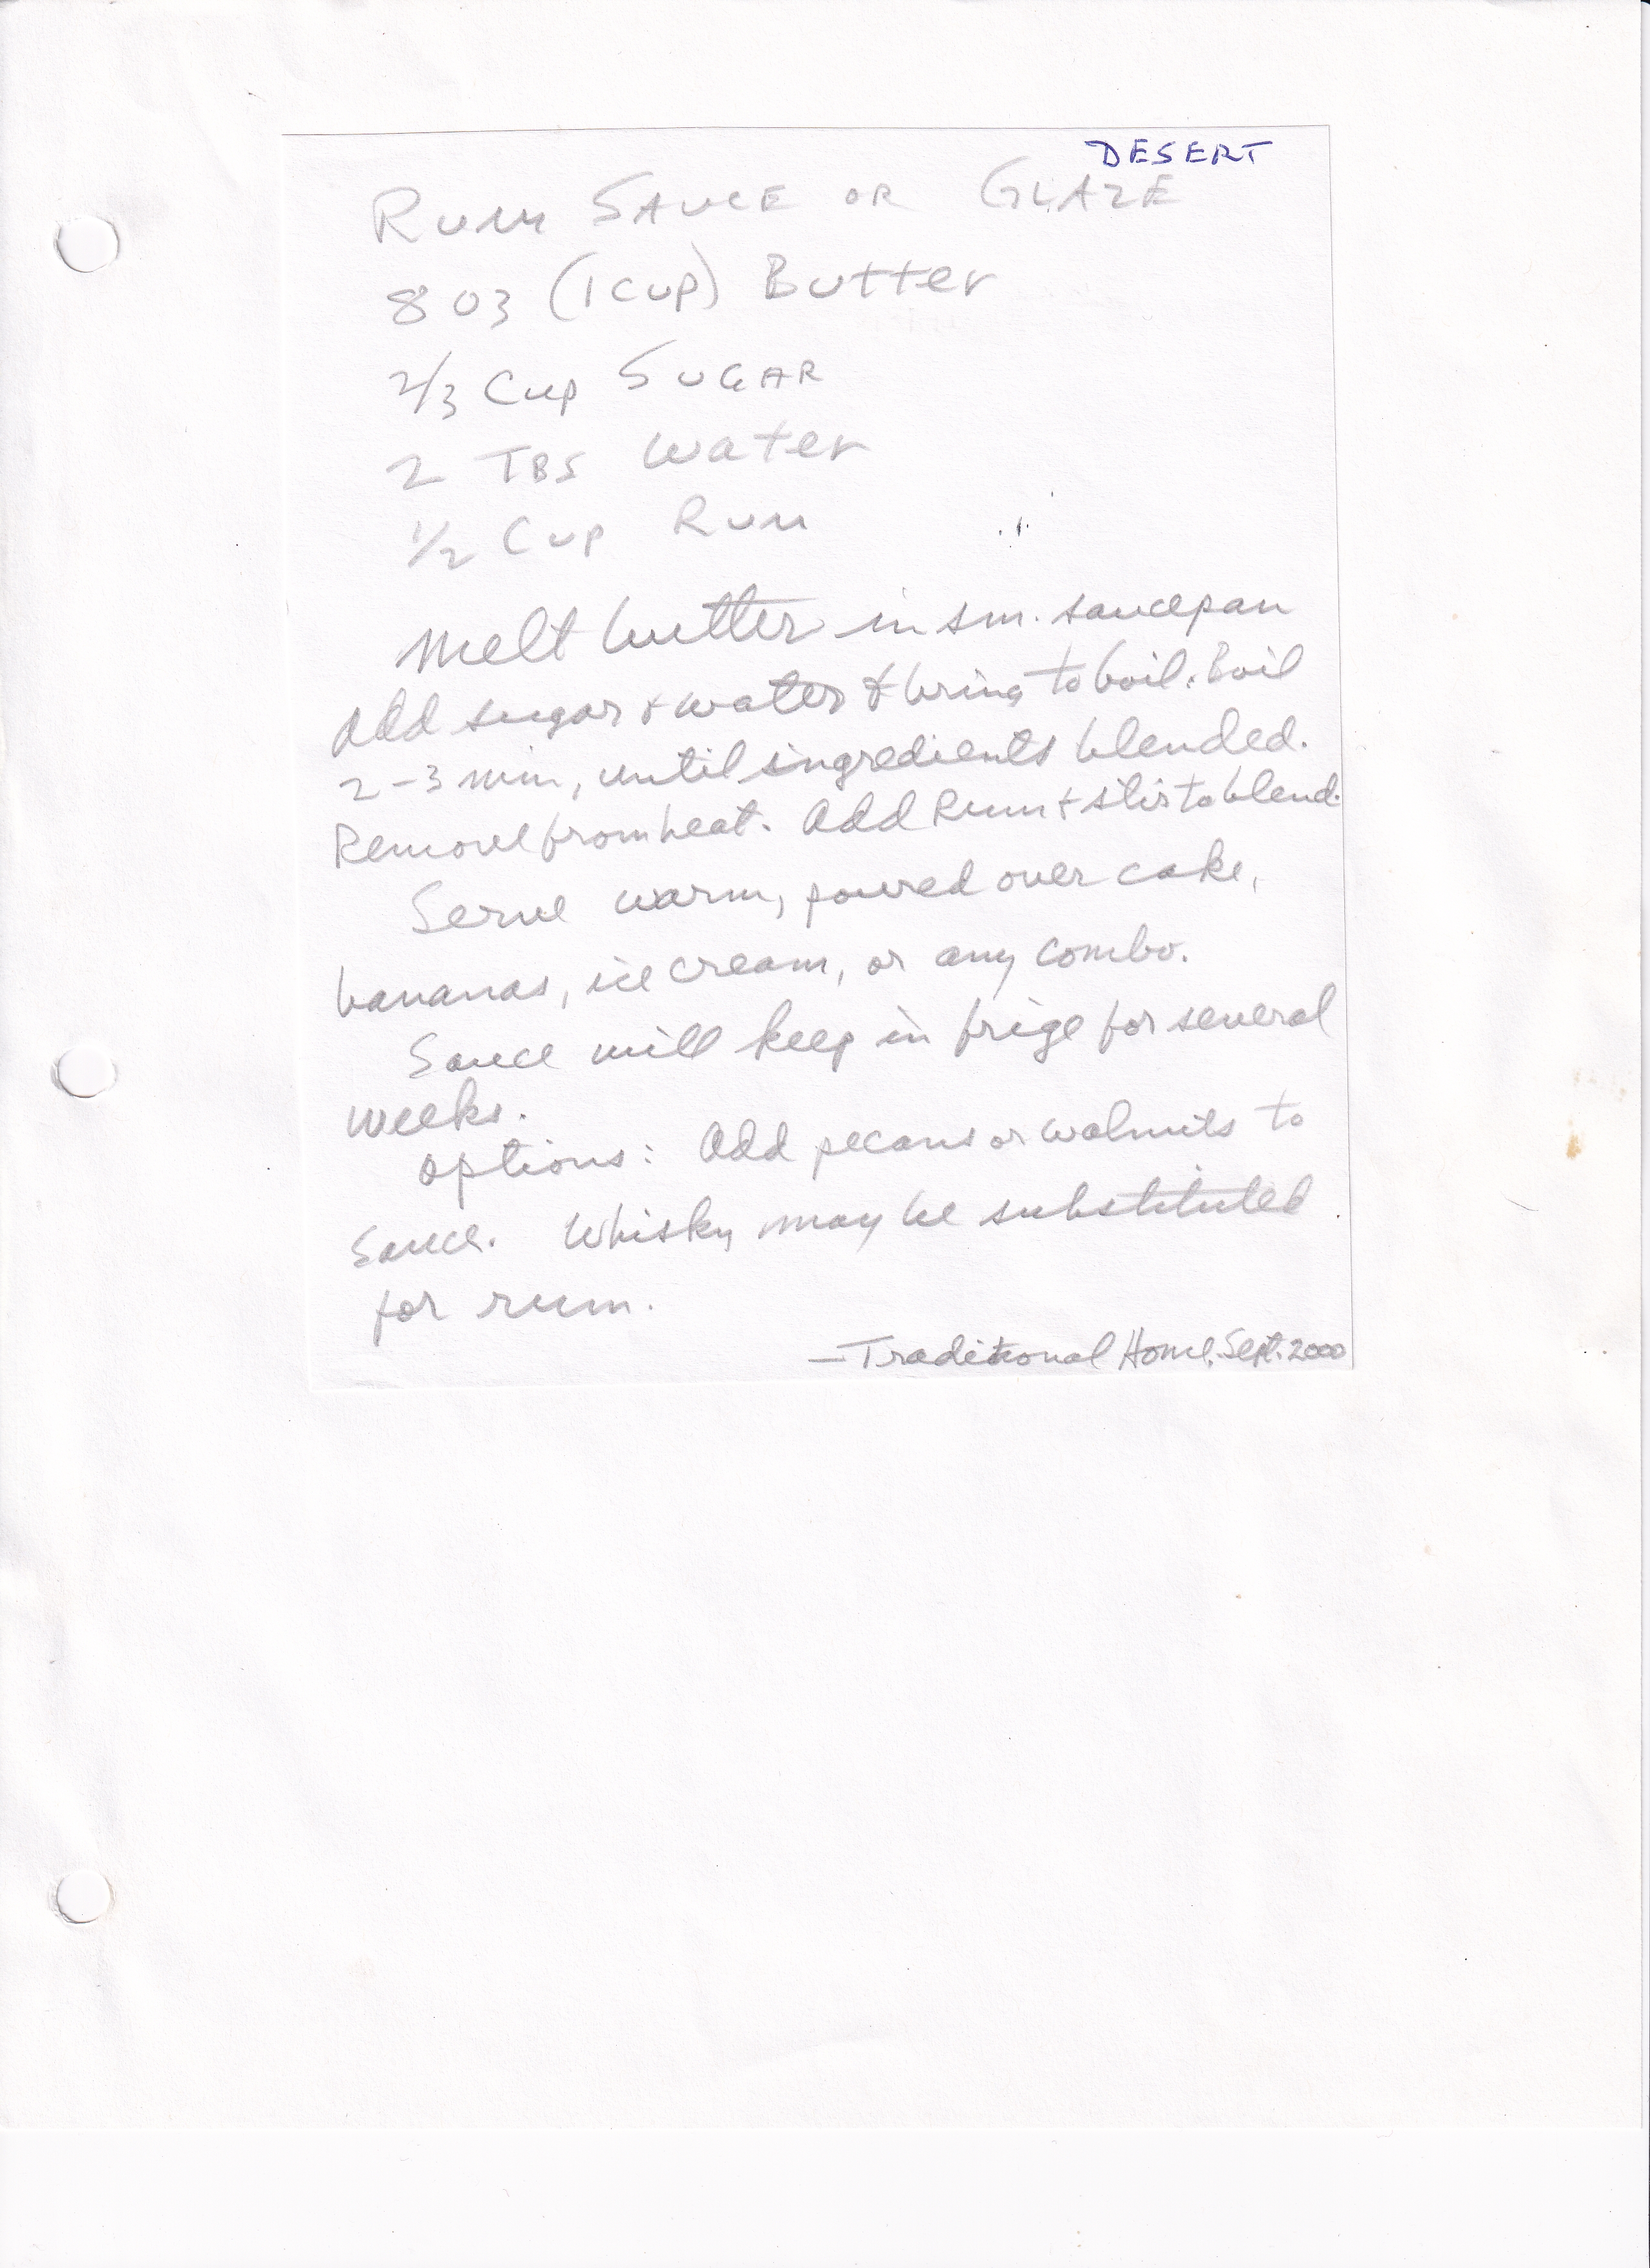 DESERT
RUM SAUCE OR GLAZE
8 oz (1 cup) Butter
2/3 Cup SUGAR
2 TBS Water
1/2 Cup Rum
Melt butter in sm. saucepan
Add sugar + water & bring to boil. Boil
2-3 min, until ingredients blended.
Remove from heat. Add Rum + stir to blend.
Serve warm, poured over cake,
bananas, ice cream, or any combo.
Sauce will keep in frige for several
weeks.
Options: Add pecans or walnuts to
sauce. Whisky may be substituted
for rum.
—Traditional Home, Sept. 2000